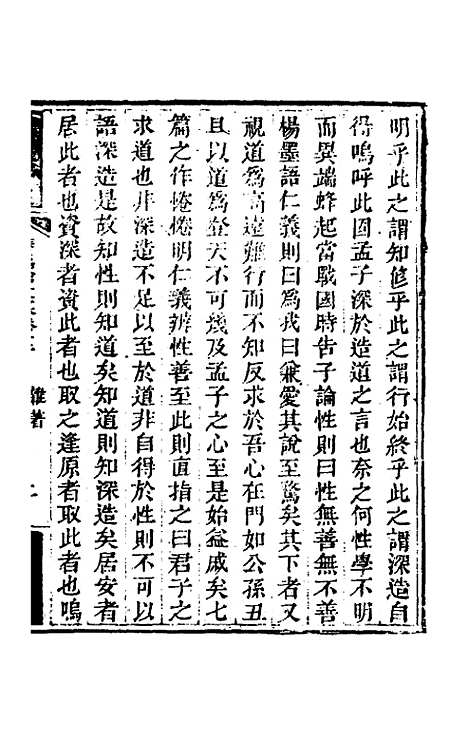 明乎此之謂知修乎此之謂行始終乎此之謂深造自
得嗚呼此固孟子深於造道之言也奈之何性學不明
而異端蜂起當戰國時告子論性則曰性無善無不善
楊墨語仁義則曰為我曰兼愛其說至駑矣其下者又
視道為高遠難行而不知反求於吾心在門如公孫丑
且以道為登天不可幾及孟子之心至是始益戚矣七
篇之作惓惓明仁義辨性善至此則直指之曰君子之
求道也非深造不足以至於道非自得於性則不可以
語深造是故知性則知道矣知道則知深造矣居安者
居此者也資深者資此者也取之逢原者取此者也嗚
雜著